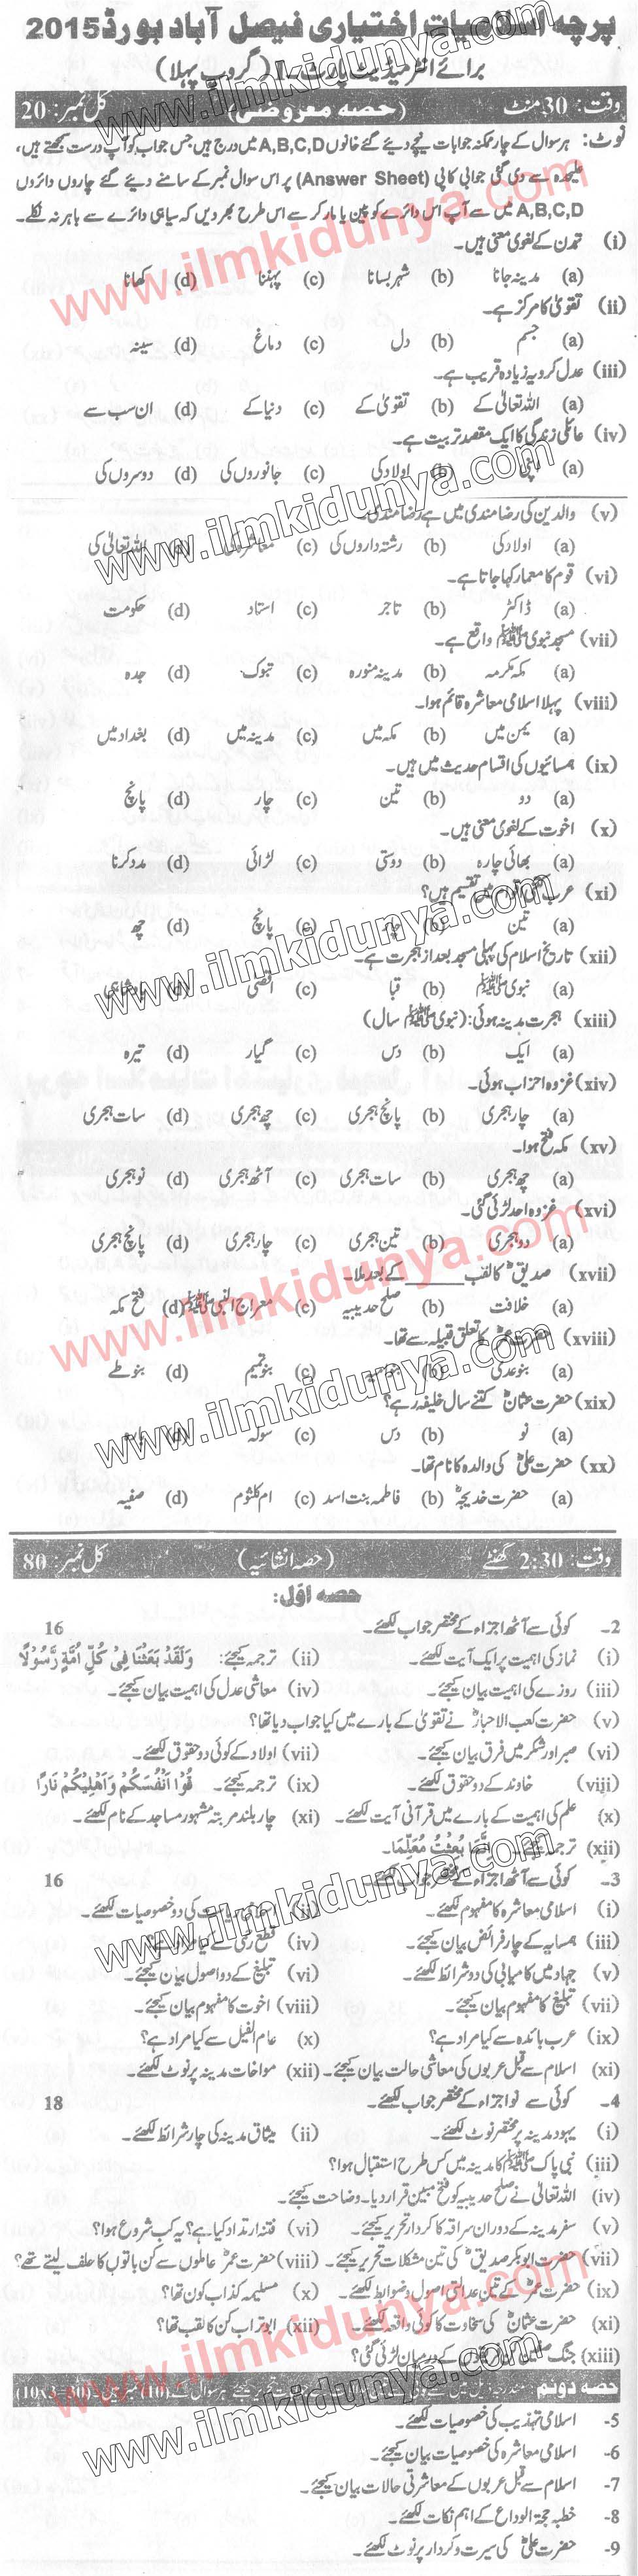 پرچہ اسلامیات اختیاری فیصل آباد بورڈ 2015
برائے انٹرمیڈیٹ پارٹ I (گروپ پہلا)
وقت: 30 منٹ (حصہ معروضی) کل نمبر: 20
نوٹ: ہر سوال کے چار ممکنہ جوابات نیچے دیے گئے خانوں A,B,C,D میں درج ہیں جس جواب کو آپ درست سمجھتے ہیں،
علیحدہ سے دی گئی جوابی کاپی (Answer Sheet) پر اس سوال نمبر کے سامنے دیئے گئے چاروں دائروں
A,B,C,D میں سے آپ اس دائرے کو پین یا مارکر سے اس طرح بھر دیں کہ سیاہی دائرے سے باہر نہ نکلے۔
(i) تمدن کے لغوی معنی ہیں۔
(a) مدینہ جانا (b) شہر بسانا (c) پہننا (d) کھانا
(ii) تقویٰ کا مرکز ہے۔
(a) جسم (b) دل (c) دماغ (d) سینہ
(iii) عدل کرو یہ زیادہ قریب ہے۔
(a) اللہ تعالیٰ کے (b) تقویٰ کے (c) دنیا کے (d) ان سب سے
(iv) عائلی زندگی کا ایک مقصد تربیت ہے۔
(a) اپنی (b) اولاد کی (c) جانوروں کی (d) دوسروں کی
(v) والدین کی رضا مندی میں ہے رضا مندی۔
(a) اولاد کی (b) رشتہ داروں کی (c) معاشرہ کی (d) اللہ تعالیٰ کی
(vi) قوم کا معمار کہا جاتا ہے۔
(a) ڈاکٹر (b) تاجر (c) استاد (d) حکومت
(vii) مسجد نبوی ﷺ واقع ہے۔
(a) مکہ مکرمہ (b) مدینہ منورہ (c) تبوک (d) جدہ
(viii) پہلا اسلامی معاشرہ قائم ہوا۔
(a) یمن میں (b) مکہ میں (c) مدینہ میں (d) بغداد میں
(ix) ہمسائیوں کی اقسام حدیث میں ہیں۔
(a) دو (b) تین (c) چار (d) پانچ
(x) اخوت کے لغوی معنی ہیں۔
(a) بھائی چارہ (b) دوستی (c) لڑائی (d) مدد کرنا
(xi) عرب میں تقسیم ہیں؟
(a) تین (b) چار (c) پانچ (d) چھ
(xii) تاریخ اسلام کی پہلی مسجد بعد از ہجرت ہے۔
(a) نبوی ﷺ (b) قبا (c) اقصٰی (d) بادشاہی
(xiii) ہجرت مدینہ ہوئی: (نبوی ﷺ سال)
(a) ایک (b) دس (c) گیارہ (d) تیرہ
(xiv) غزوہ احزاب ہوئی۔
(a) چار ہجری (b) پانچ ہجری (c) چھ ہجری (d) سات ہجری
(xv) مکہ فتح ہوا۔
(a) چھ ہجری (b) سات ہجری (c) آٹھ ہجری (d) نو ہجری
(xvi) غزوہ احد لڑی گئی۔
(a) دو ہجری (b) تین ہجری (c) چار ہجری (d) پانچ ہجری
(xvii) صدیقؓ کا لقب ______ کے بعد ملا۔
(a) خلافت (b) صلح حدیبیہ (c) معراج النبی ﷺ (d) فتح مکہ
(xviii) حضرت عمرؓ کا تعلق قبیلہ سے تھا۔
(a) بنو عدی (b) بنو امیہ (c) بنو تمیم (d) بنو طے
(xix) حضرت عثمانؓ کتنے سال خلیفہ رہے؟
(a) نو (b) دس (c) سولہ (d) بارہ
(xx) حضرت علیؓ کی والدہ کا نام تھا۔
(a) حضرت خدیجہؓ (b) فاطمہ بنت اسد (c) ام کلثوم (d) صفیہ
وقت: 2:30 گھنٹے (حصہ انشائیہ) کل نمبر: 80
حصہ اوّل:
2- کوئی سے آٹھ اجزاء کے مختصر جواب لکھئے۔ 16
(i) نماز کی اہمیت پر ایک آیت لکھئے۔ (ii) ترجمہ کیجئے: وَلَقَدْ بَعَثْنَا فِىْ كُلِّ اُمَّةٍ رَّسُوْلًا
(iii) روزے کی اہمیت بیان کیجئے۔ (iv) معاشی عدل کی اہمیت بیان کیجئے۔
(v) حضرت کعب الاحبارؓ نے تقویٰ کے بارے میں کیا جواب دیا تھا؟
(vi) صبر اور شکر میں فرق بیان کیجئے۔ (vii) اولاد کے کوئی دو حقوق لکھئے۔
(viii) خاوند کے دو حقوق لکھئے۔ (ix) ترجمہ کیجئے۔ قُوْآ اَنْفُسَكُمْ وَاَهْلِيْكُمْ نَارًا
(x) علم کی اہمیت کے بارے میں قرآنی آیت لکھئے۔ (xi) چار بلند مرتبہ مشہور مساجد کے نام لکھئے۔
(xii) ترجمہ کیجئے۔ اِنَّمَا بُعِثْتُ مُعَلِّمًا۔
3- کوئی سے آٹھ اجزاء کے مختصر جواب لکھئے۔ 16
(i) اسلامی معاشرہ کا مفہوم لکھئے۔ (ii) اسلامی ریاست کی دو خصوصیات لکھئے۔
(iii) ہمسایہ کے چار فرائض بیان کیجئے۔ (iv) قطع رحمی سے کیا مراد ہے؟
(v) جہاد میں کامیابی کی دو شرائط لکھئے۔ (vi) تبلیغ کے دو اصول بیان کیجئے۔
(vii) تبلیغ کا مفہوم بیان کیجئے۔ (viii) اخوت کا مفہوم بیان کیجئے۔
(ix) عرب بائدہ سے کیا مراد ہے؟ (x) عام الفیل سے کیا مراد ہے؟
(xi) اسلام سے قبل عربوں کی معاشی حالت بیان کیجئے۔ (xii) مواخات مدینہ پر نوٹ لکھئے۔
4- کوئی سے نو اجزاء کے مختصر جواب لکھئے۔ 18
(i) یہود مدینہ پر مختصر نوٹ لکھئے۔ (ii) میثاق مدینہ کی چار شرائط لکھئے۔
(iii) نبی پاک ﷺ کا مدینہ میں کس طرح استقبال ہوا؟
(iv) اللہ تعالیٰ نے صلح حدیبیہ کو فتح مبین قرار دیا۔ وضاحت کیجئے۔
(v) سفر مدینہ کے دوران سراقہ کا کردار تحریر کیجئے۔ (vi) فتنہ ارتداد کیا ہے؟ یہ کب شروع ہوا؟
(vii) حضرت ابوبکر صدیقؓ کی تین مشکلات تحریر کیجئے۔ (viii) حضرت عمرؓ عاملوں سے کن باتوں کا حلف لیتے تھے؟
(ix) حضرت عمرؓ کے تین عدالتی اصول و ضوابط لکھئے۔ (x) مسلیمہ کذاب کون تھا؟
(xi) حضرت عثمانؓ کی سخاوت کا کوئی واقعہ لکھئے۔ (xii) ابوتراب کن کا لقب تھا؟
(xiii) جنگ صفین کے درمیان لڑی گئی؟
حصہ دوئم
5- اسلامی تہذیب کی خصوصیات لکھئے۔
6- اسلامی معاشرہ کی خصوصیات بیان کیجئے۔
7- اسلام سے قبل عربوں کے معاشرتی حالات بیان کیجئے۔
8- خطبہ حجۃ الوداع کے اہم نکات لکھئے۔
9- حضرت علیؓ کی سیرت و کردار پر نوٹ لکھئے۔
www.ilmkidunya.com
www.ilmkidunya.com
www.ilmkidunya.com
www.ilmkidunya.com
www.ilmkidunya.com
www.ilmkidunya.com
www.ilmkidunya.com
www.ilmkidunya.com
www.ilmkidunya.com